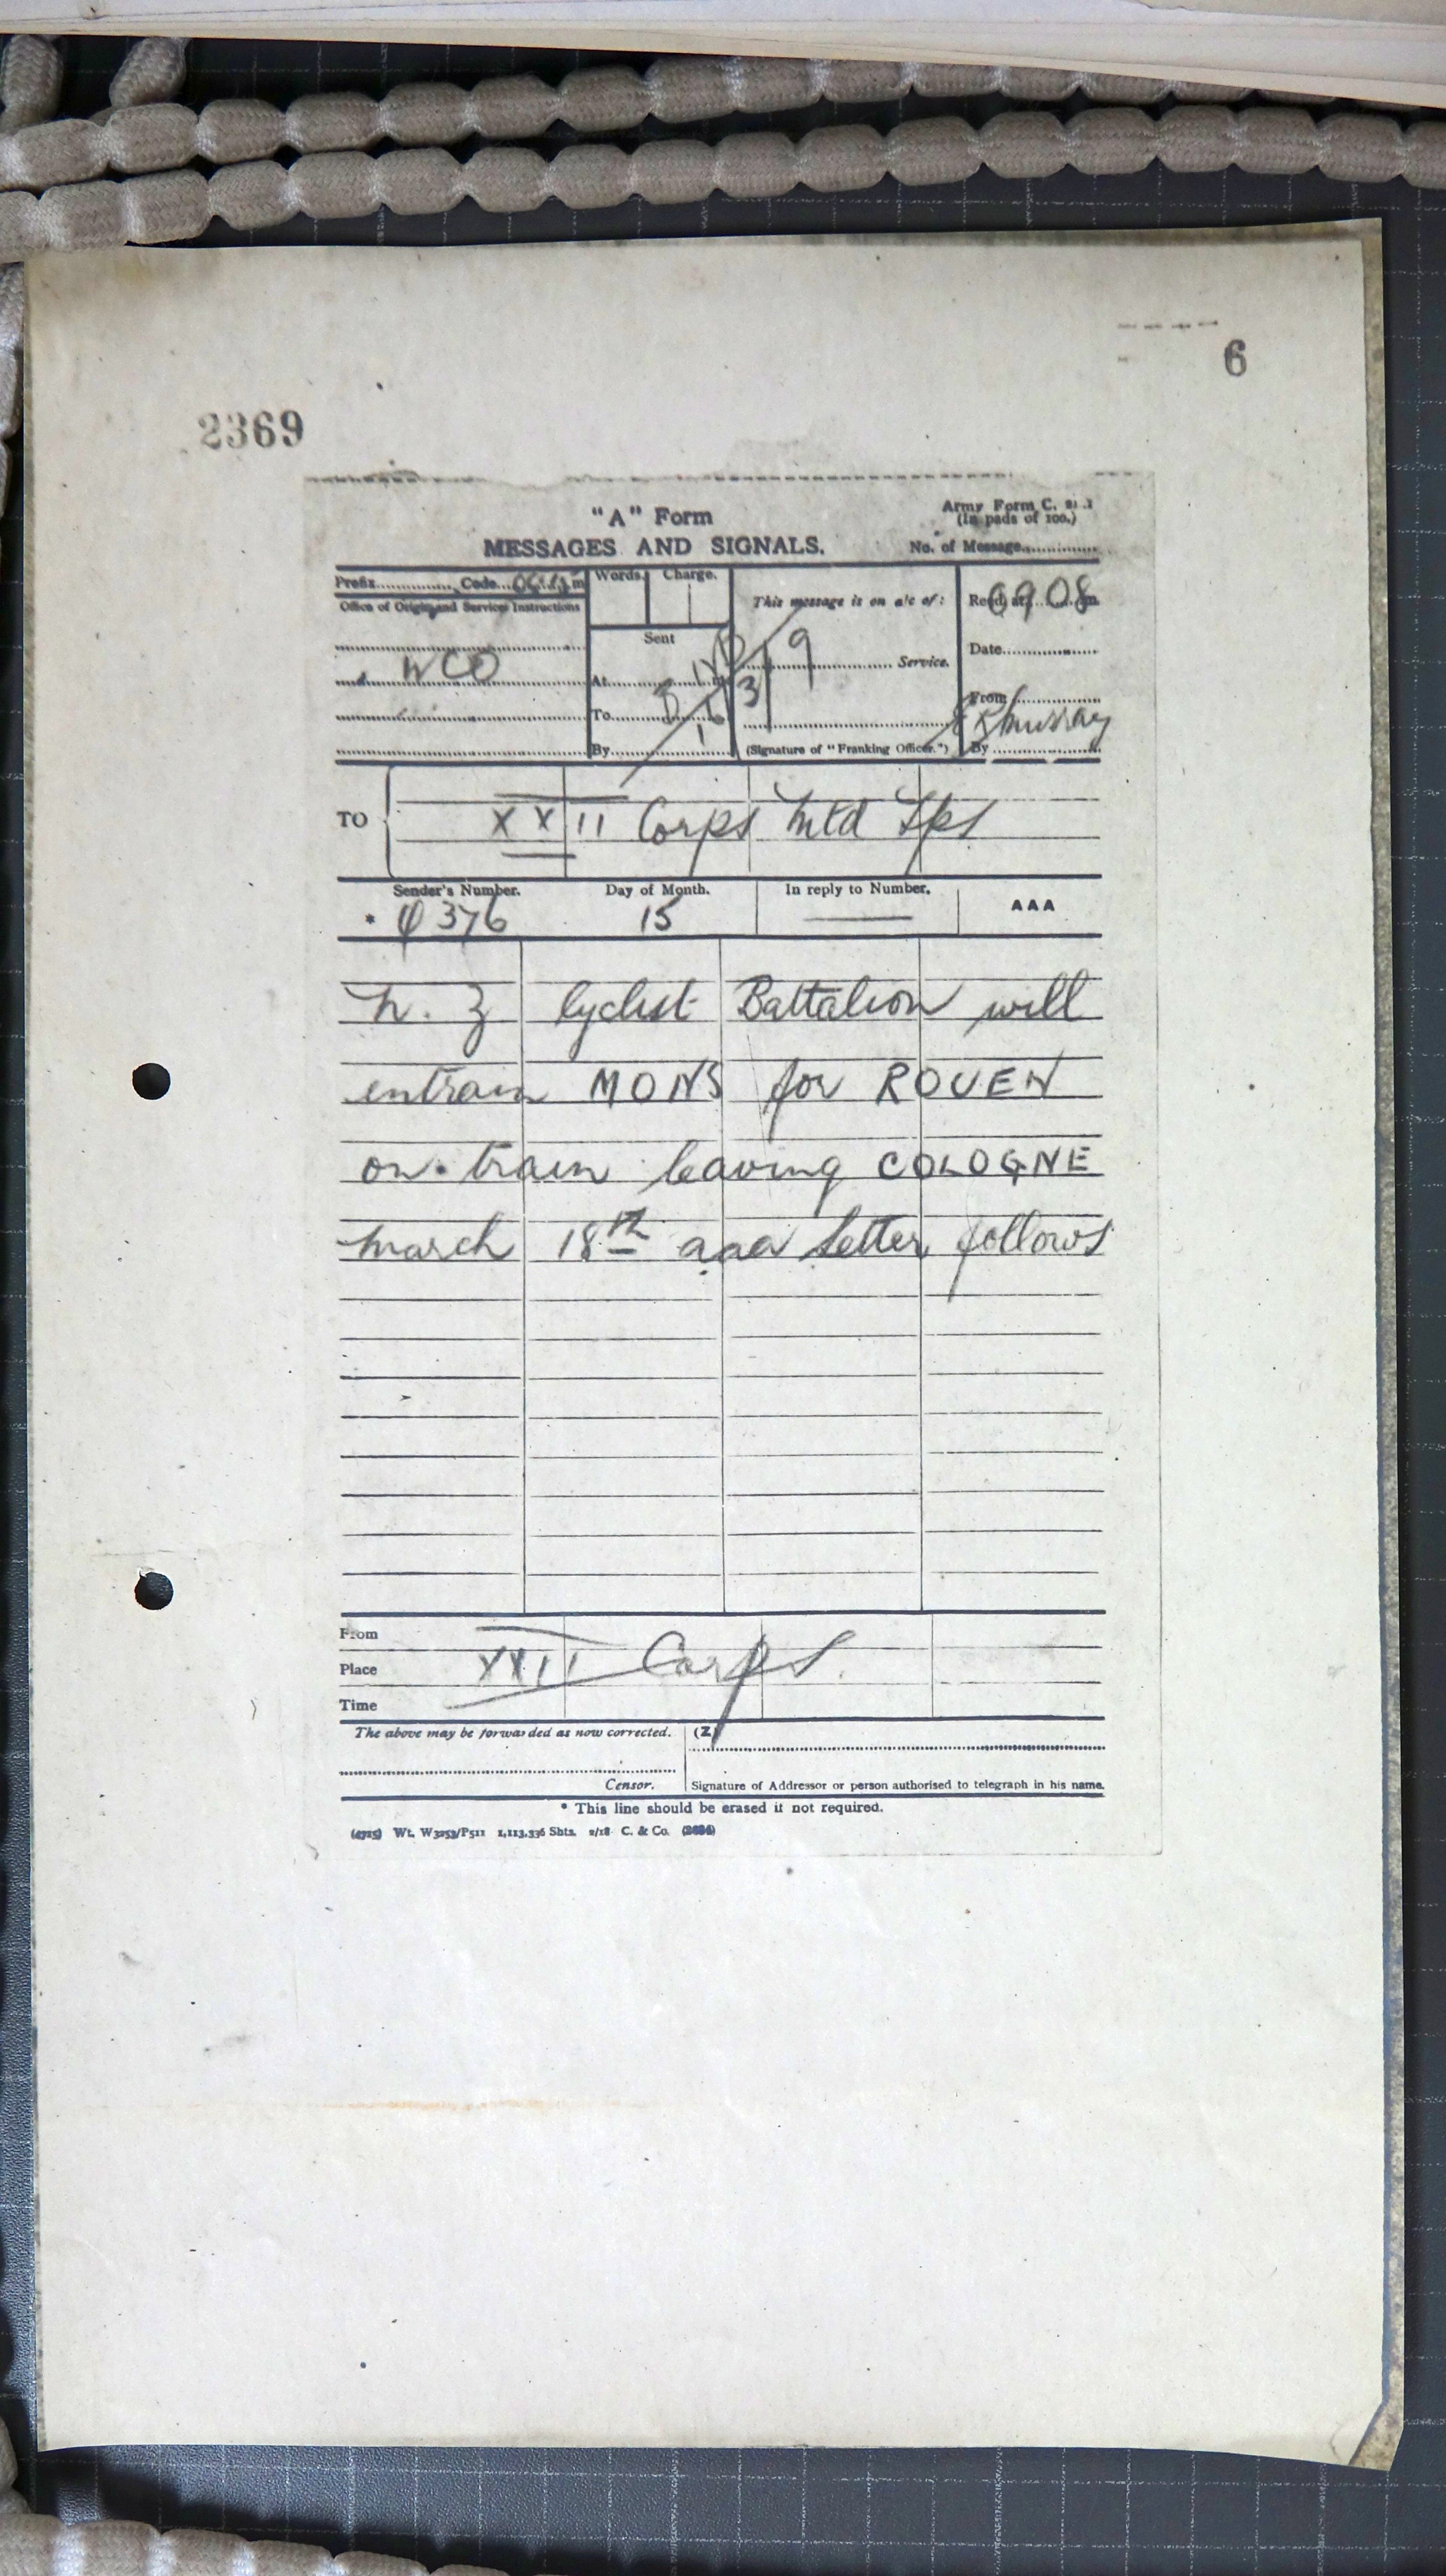 6
2369
"A" Form
Army Form C.
(In pads of 100.)
MESSAGES AND SIGNALS.
No. of Message..............
Prefix.............. Code........m
Words. Charge.
This message is on a/c of:
Recd. at 0908 m.
Office of Origin and Service Instructions
Sent
19 Service.
Date..............
WCO
At..............m.
3
From..............
To..............
Murray
By..............
(Signature of "Franking Officer.")
By..............
TO
XXII Corps Mtd Tps
Sender's Number.
Day of Month.
In reply to Number.
AAA
* Q376
15
N. Z Cyclist Battalion will
entrain MONS for ROUEN
on train leaving COLOGNE
March 18th aaa letter follows
From
Place
XXII Corps.
Time
The above may be forwarded as now corrected.
(Z)
Censor.
Signature of Addressor or person authorised to telegraph in his name.
* This line should be erased if not required.
Wt. W3253/P511 1,113,336 Shts. 2/18 C. & Co.